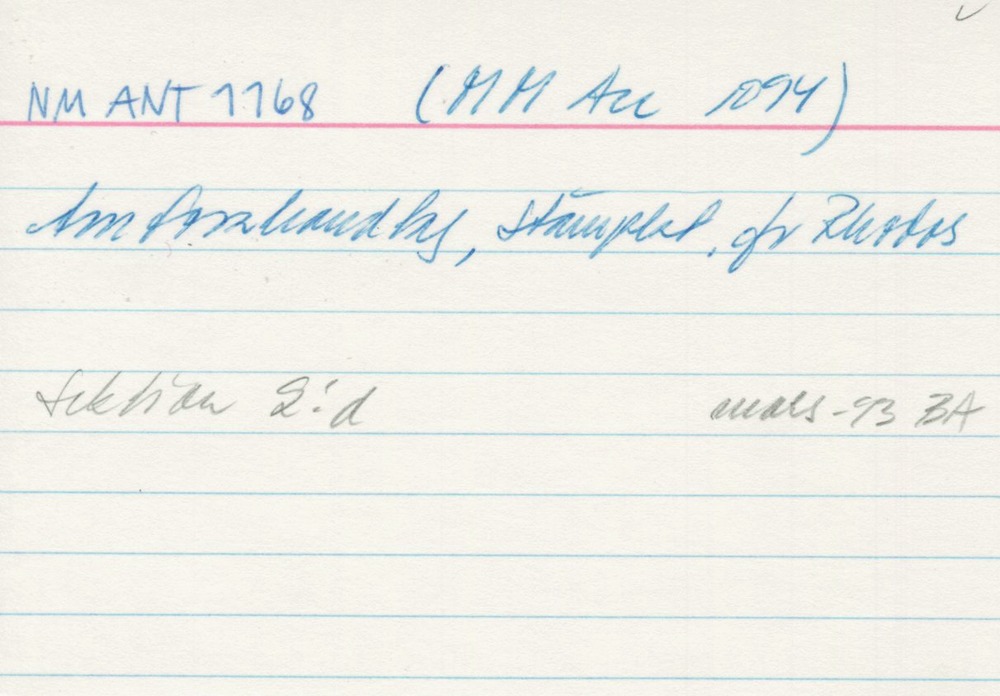 NM ANT 1168 (MM Acc 1094)
Amforahandtag, stämplat, fr Rhodos
Sektion 2:d mars -93 BA